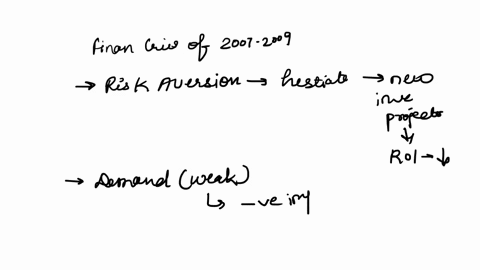 Finan Crisis of 2007-2009
→ Risk Aversion → hestiate → new
inve
projects
↓
ROI - ↓
→ Demand (weak)
↳ -ve imp